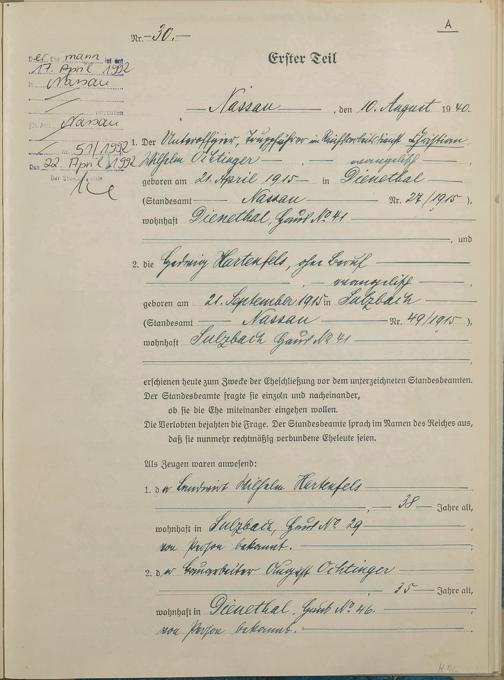 A
Nr. 30.
Erster Teil
Der Ehemann ist am
17. April 1992
in Nassau
verstorben
StA Nassau
Nr. 51/1992
Den 22. April 1992
Der Standesbeamte
Nassau, den 10. August 1940.
1. Der Unteroffizier, Truppführer im Reichsarbeitsdienst Christian
Wilhelm Ochtinger evangelisch
geboren am 21. April 1915 in Dienethal
(Standesamt Nassau Nr. 27/1915),
wohnhaft Dienethal, Haus No 41
, und
2. die Hedwig Hartenfels, ohne Beruf
evangelisch
geboren am 21. September 1915 in Sulzbach
(Standesamt Nassau Nr. 49/1915),
wohnhaft Sulzbach Haus No 41
erschienen heute zum Zwecke der Eheschließung vor dem unterzeichneten Standesbeamten.
Der Standesbeamte fragte sie einzeln und nacheinander,
ob sie die Ehe miteinander eingehen wollen.
Die Verlobten bejahten die Frage. Der Standesbeamte sprach im Namen des Reiches aus,
daß sie nunmehr rechtmäßig verbundene Eheleute seien.
Als Zeugen waren anwesend:
1. der Landwirt Wilhelm Hartenfels
, 38 Jahre alt,
wohnhaft in Sulzbach, Haus No 29
von Person bekannt.
2. der Bauarbeiter August Ochtinger
35 Jahre alt,
wohnhaft in Dienethal, Haus No 46.
von Person bekannt.